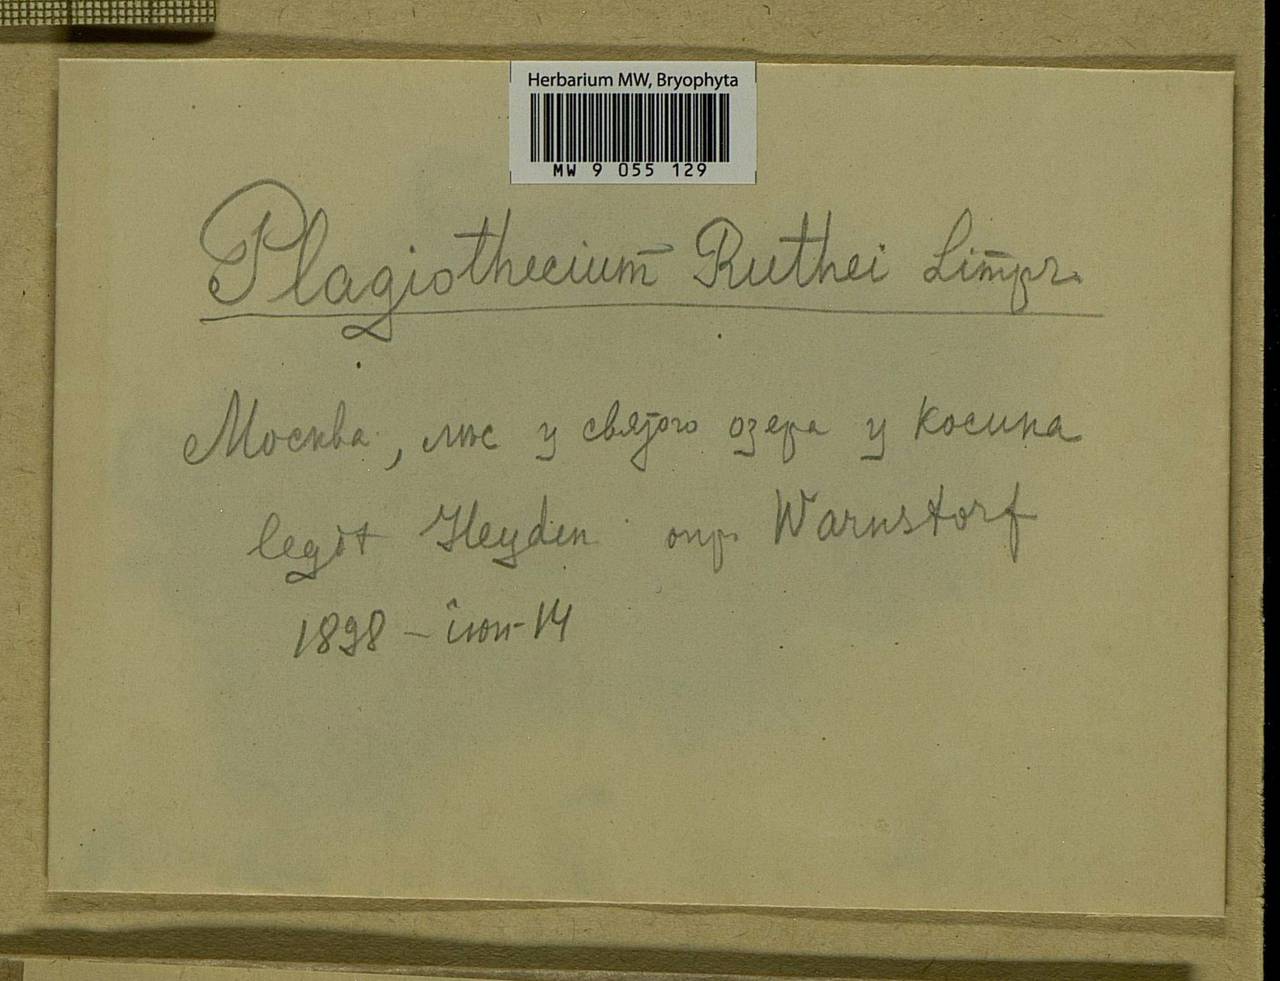 Herbarium MW, Bryophyta
MW 9 055 129
Plagiothecium Ruthei Limpr.
Москва, лес у святого озера у Косина
legit Heyden опр. Warnstorf
1898 – iюн-14